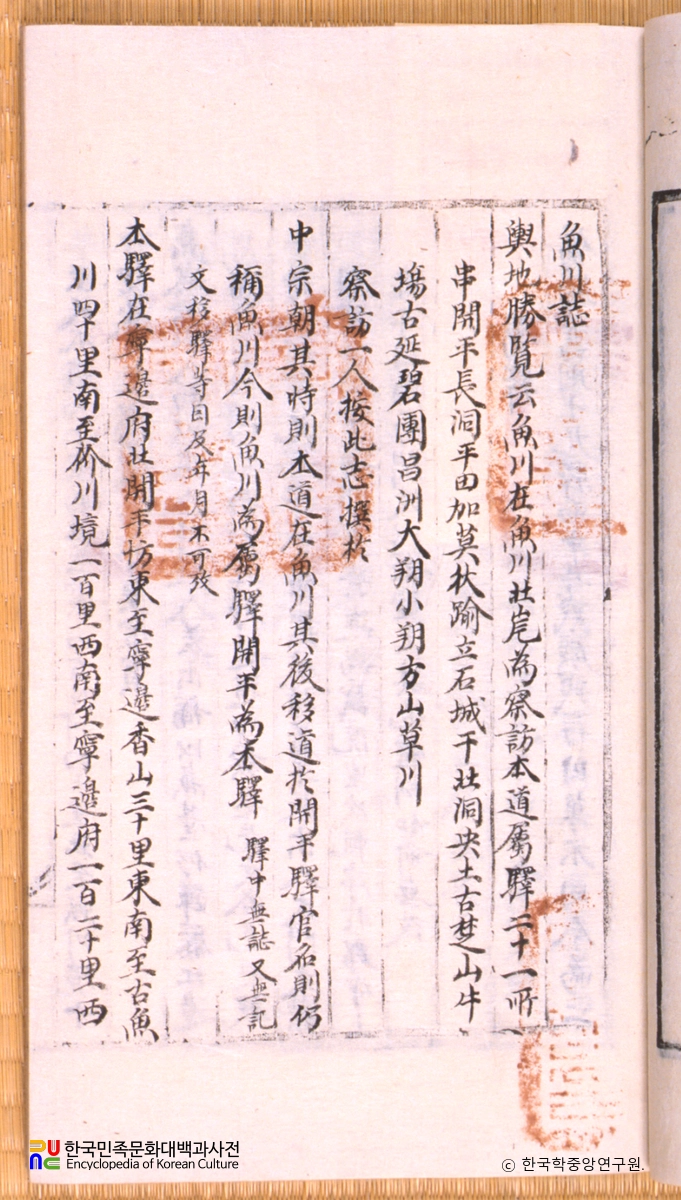 魚川誌
輿地勝覽云魚川在魚川北岸為察訪本道屬驛二十一所
串開平長洞平田加莫狄踰立石城干北洞央土古楚山牛
塲古延碧團昌洲大朔小朔方山草川
察訪一人按此志撰於
中宗朝其時則本道在魚川其後移道於開平驛官名則仍
稱魚川今則魚川為屬驛開平為本驛 驛中無誌又無記
文移驛等因及年月不可攷
本驛在寧邊府北開平坊東至寧邊香山三十里東南至古魚
川四十里南至价川境一百里西南至寧邊府一百二十里西
한국민족문화대백과사전
Encyclopedia of Korean Culture
ⓒ 한국학중앙연구원.